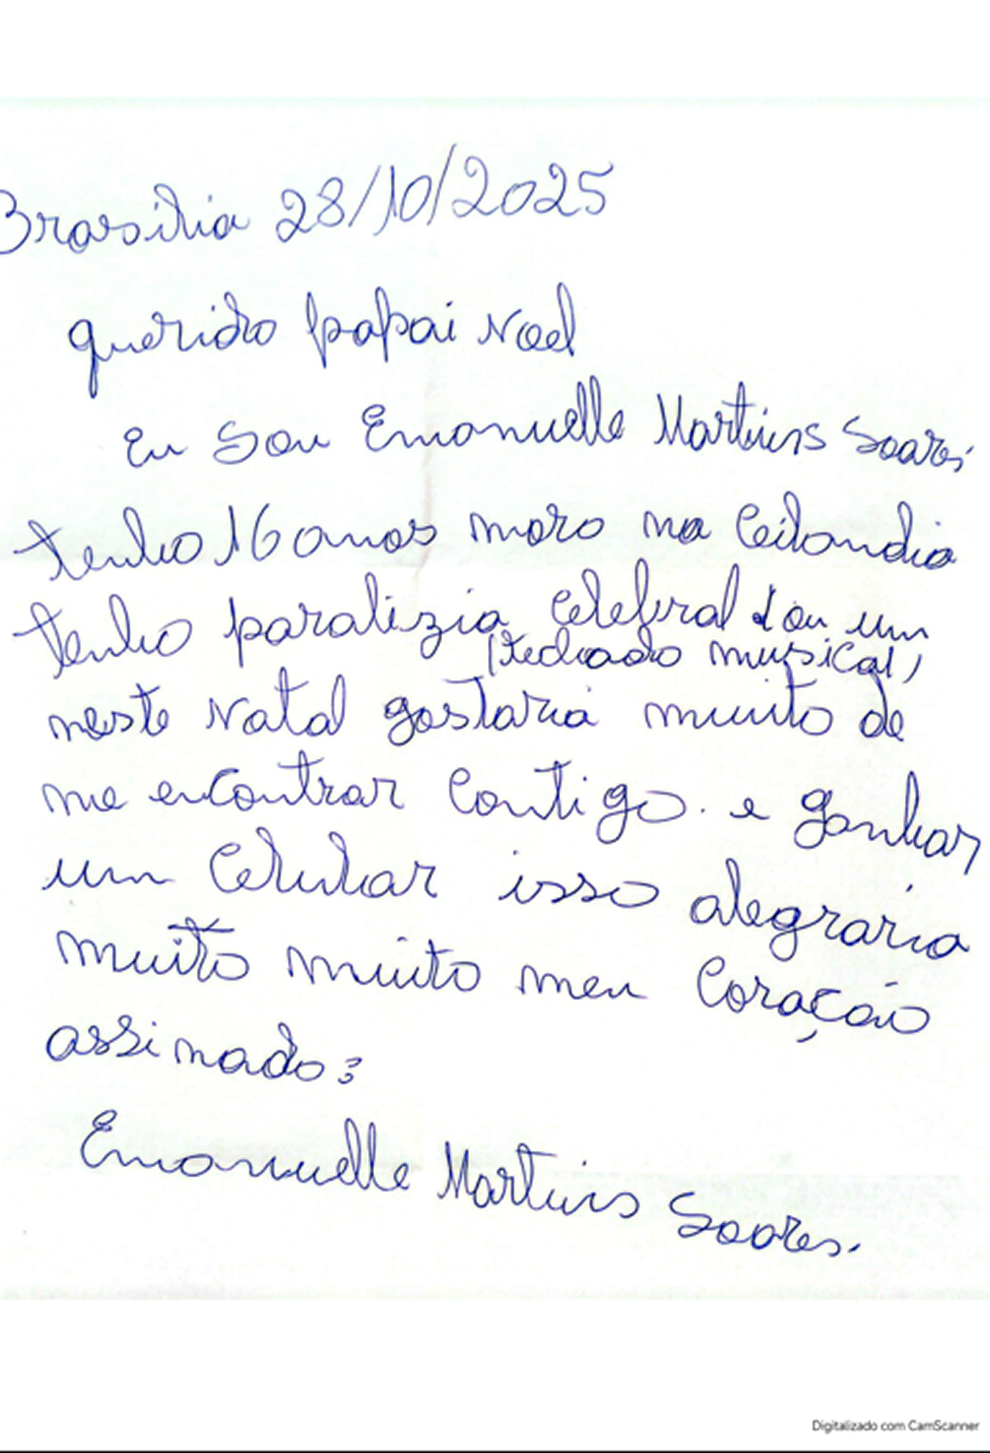 Brasilia 28/10/2025
querido papai Noel
Eu Sou Emanuelle Martins Soares
tenho 16 anos moro na Ceilandia
tenho paralizia celebral ou um
(teclado musical)
neste Natal gostaria muito de
me encontrar Contigo. e ganhar
um Celular isso alegraria
muito muito meu Coração
assinado:
Emanuelle Martins Soares.
Digitalizado com CamScanner